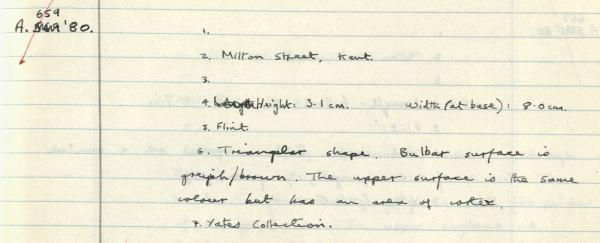 659
A. '80.
1.
2. Milton Street, Kent.
3.
4. Height: 3.1 cm. Width (at base): 8.0 cm.
5. Flint.
6. Triangular shape. Bulbar surface is
greyish/brown. The upper surface is the same
colour but has an area of cortex.
7. Yates Collection.